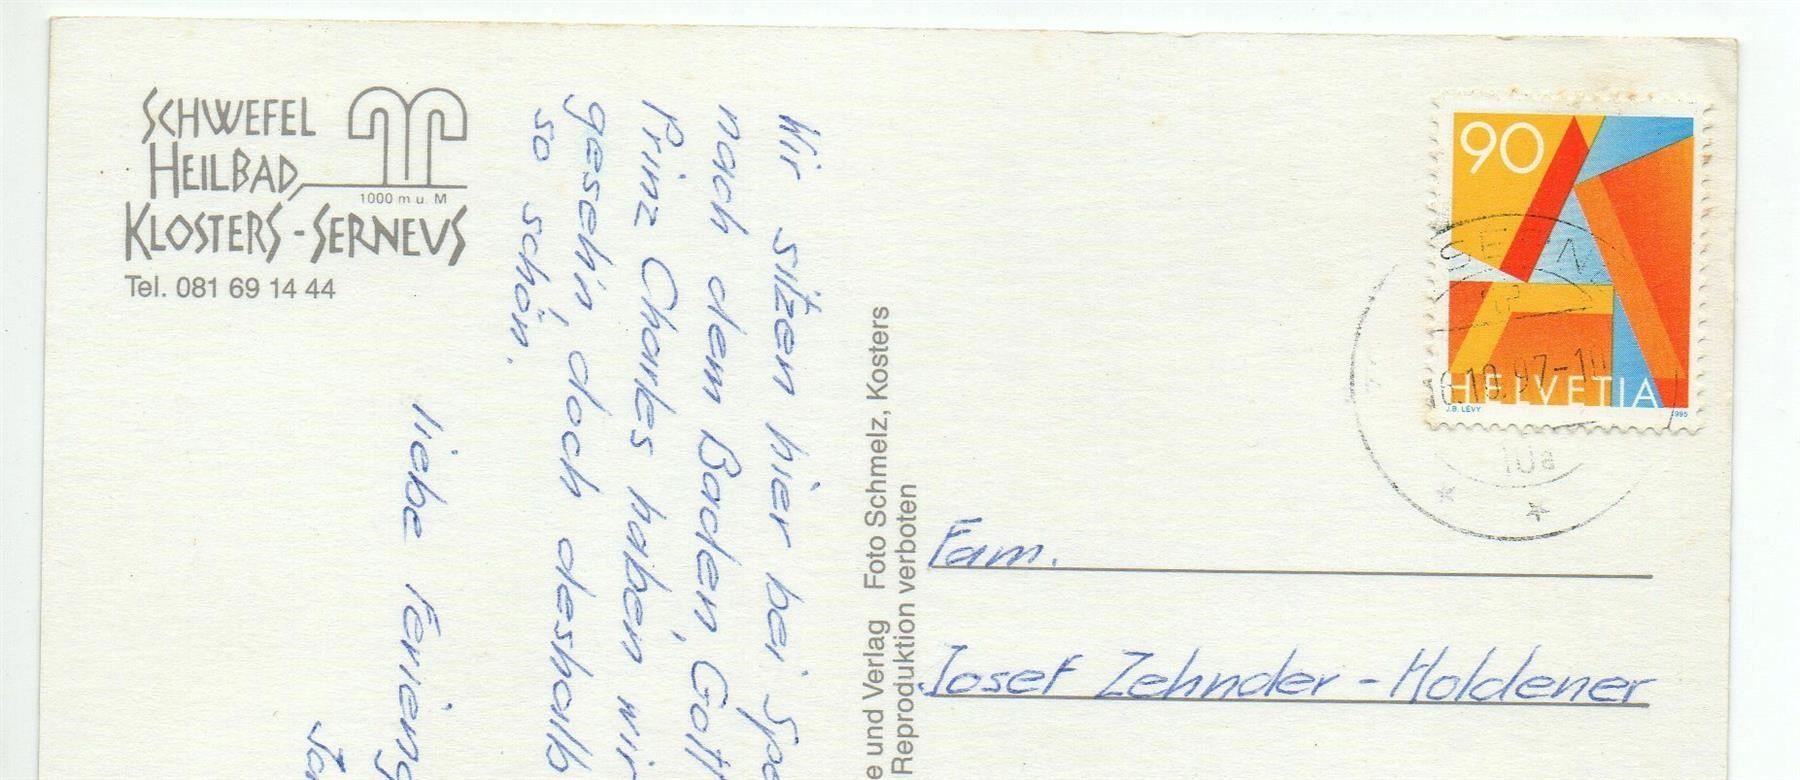 SCHWEFEL
HEILBAD
1000 m ü. M
KLOSTERS-SERNEUS
Tel. 081 69 14 44
Wir sitzen hier bei
nach dem Baden,
Prinz Charles haben wir
geseh'n, doch deshalb
so schön.
liebe
und Verlag Foto Schmelz, Kosters
Reproduktion verboten
90
HELVETIA
J.B. LÉVY
1995
10a
Fam.
Josef Zehnder-Holdener